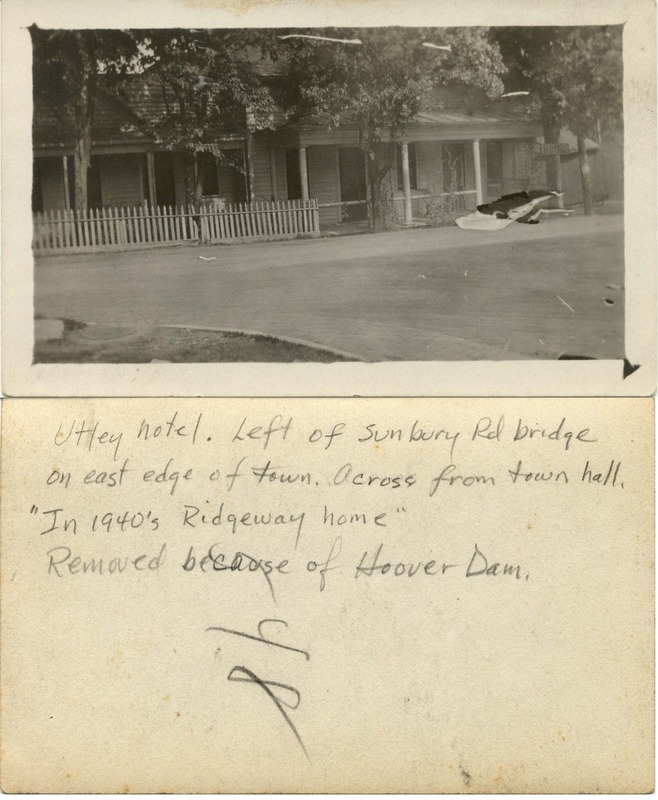 Utley hotel. Left of Sunbury Rd bridge
on east edge of town. Across from town hall.
"In 1940's Ridgeway home"
Removed because of Hoover Dam.
48